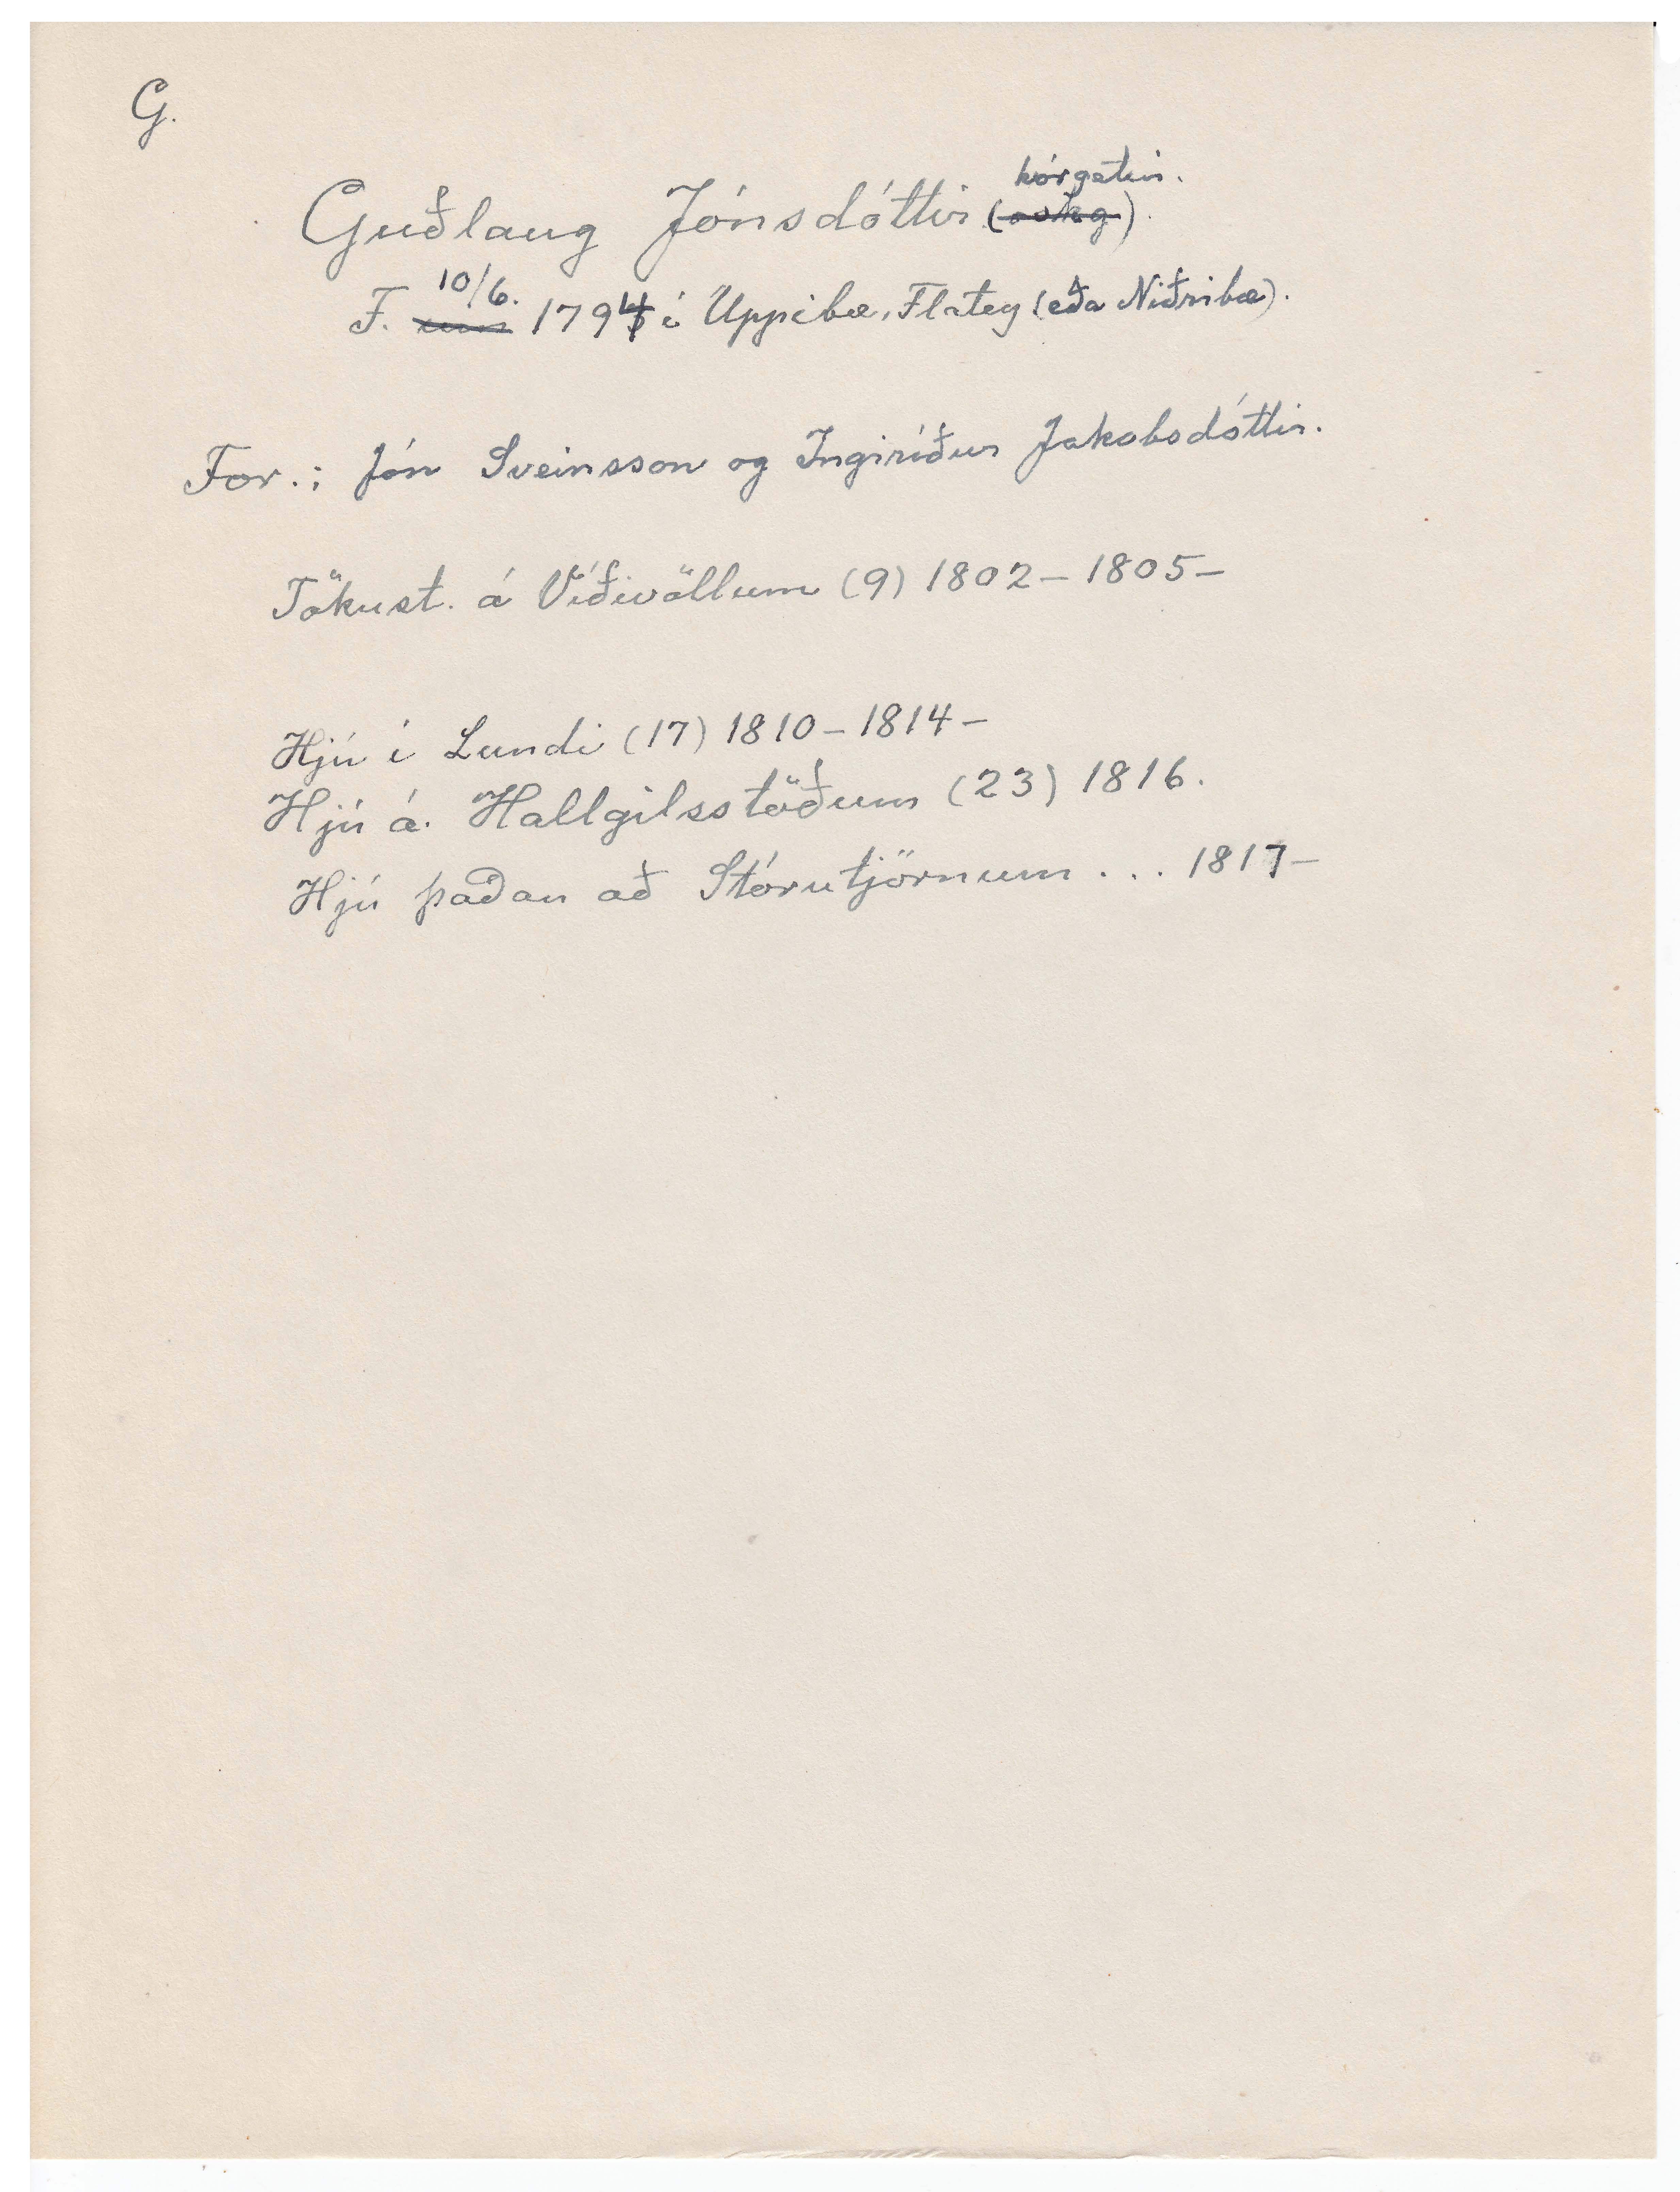 G.
hórgetin.
Guðlaug Jónsdóttir
10/6.
F. um 1794 í Uppibæ, Flatey (eða Niðribæ).
For.: Jón Sveinsson og Ingiríður Jakobsdóttir.
Tökust. á Víðivöllum (9) 1802-1805-
Hjú í Lundi (17) 1810-1814-
Hjú á. Hallgilsstöðum (23) 1816.
Hjú þaðan að Stórutjörnum... 1817-